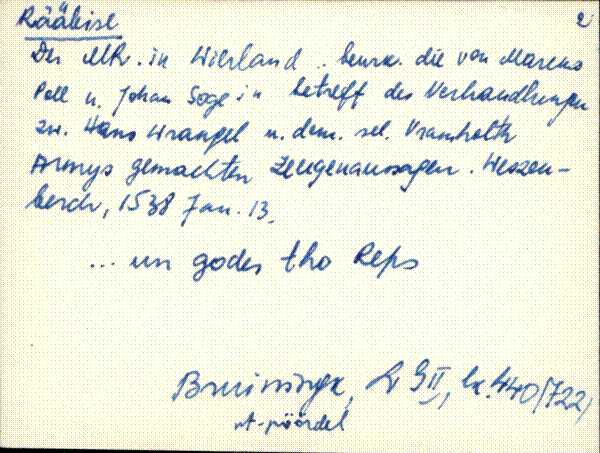 Rääbise 2
Der MR. in Wierland .. beurk. die von Marcus
Poll u. Johan Soge in betreff des Verhandlungen
zw. Hans Wrangel u. dem. sel. Vramholth
Armys gemachten Zeugenaussagen. Weszen-
berch, 1538 Jan. 13.
... un godes tho Reps
Bruiningk, LG II, lk. 440 (722)
vt. pöördel